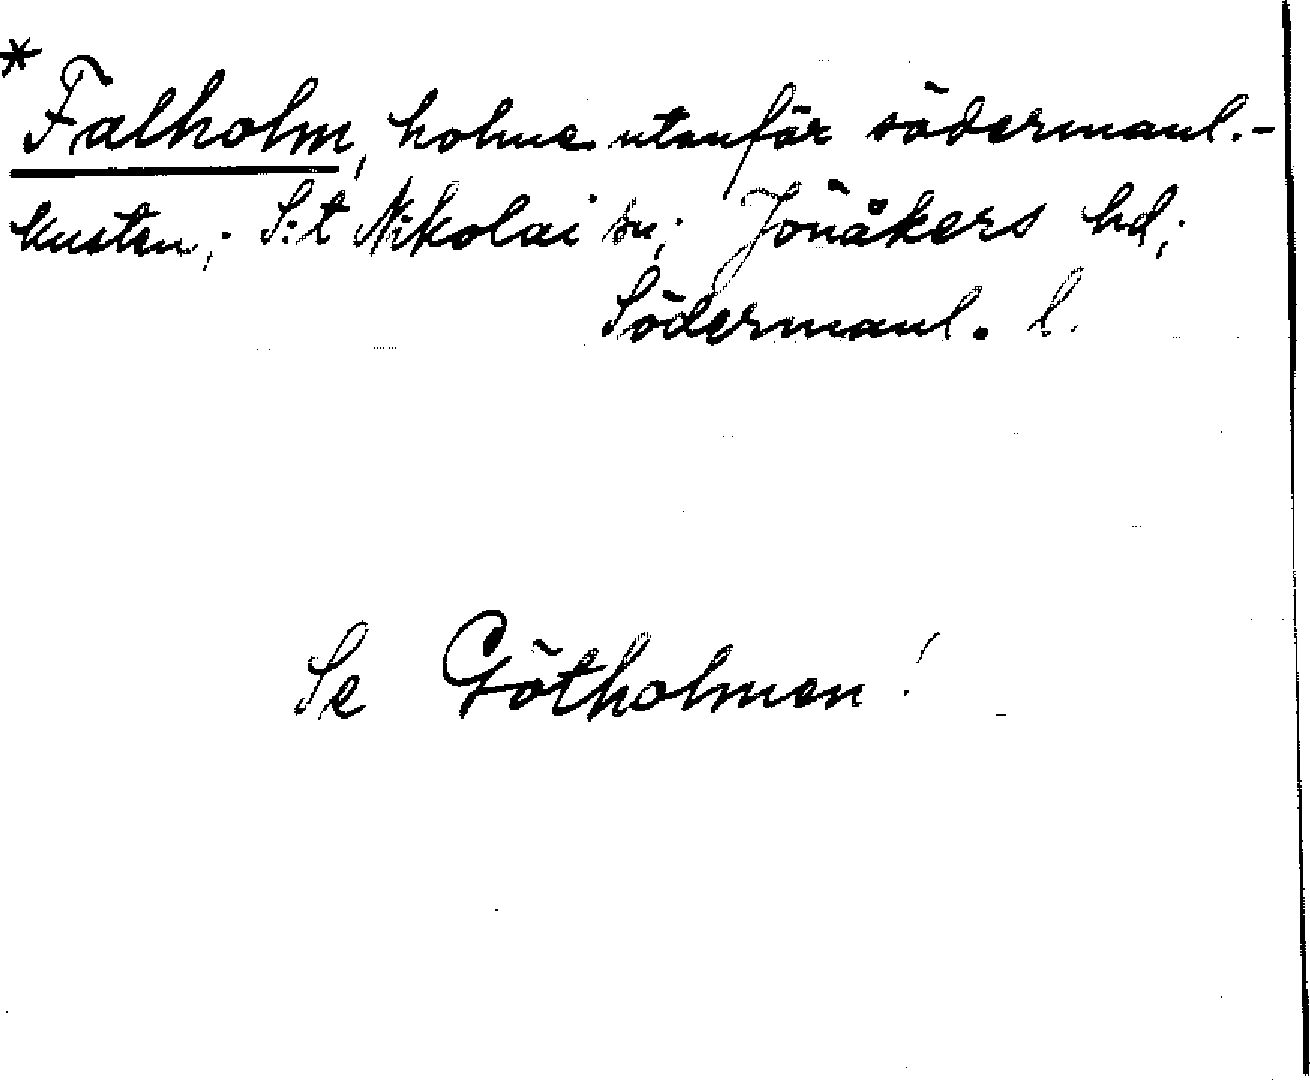 * Falholm, holme utanför södermanl.-
kusten; S:t Nikolai sn; Jönåkers hd;
Södermanl. l.
Se Götholmen!